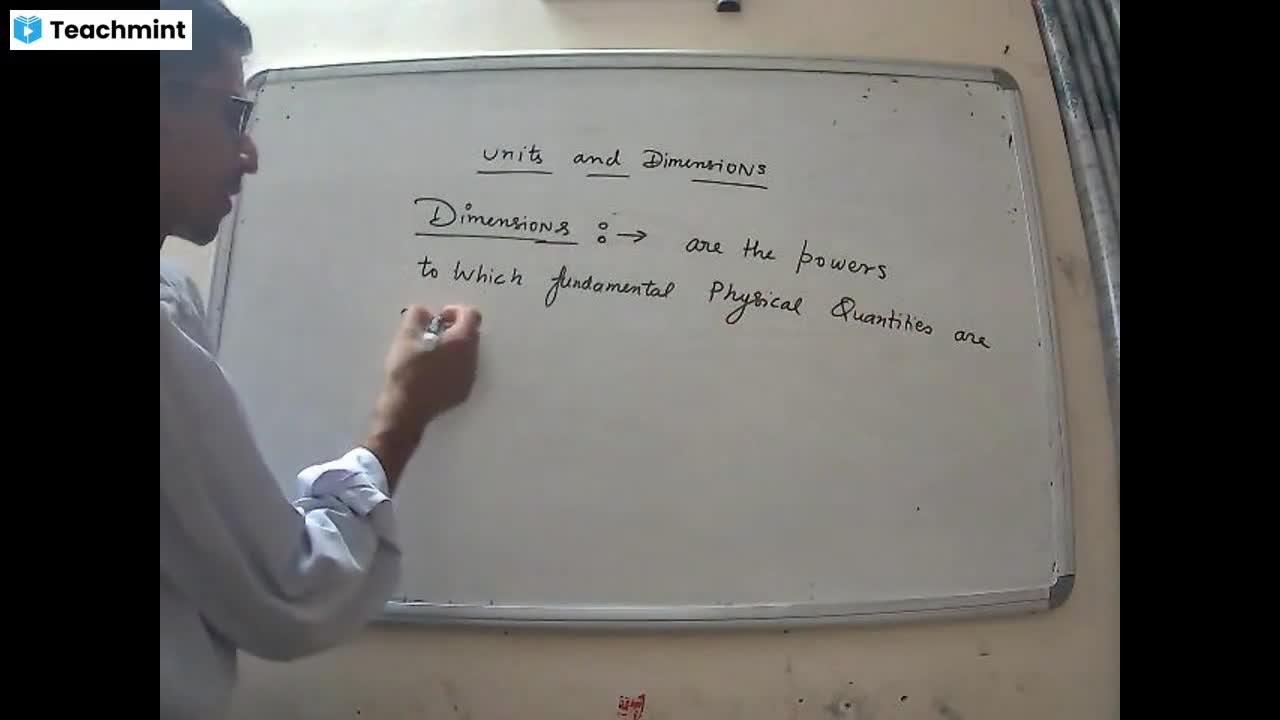 Teachmint
Units and Dimensions
Dimensions : → are the powers
to which fundamental Physical Quantities are